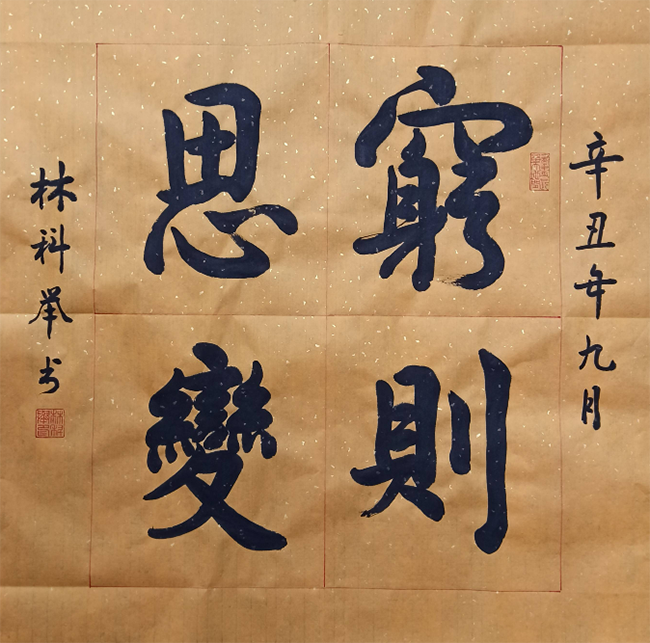 辛丑年九月
窮則
思變
林科举书